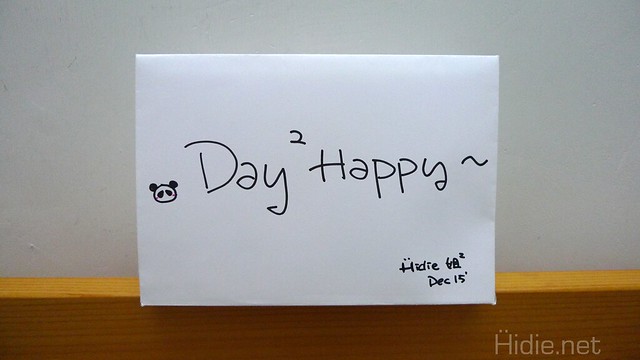 Day² Happy~
Hidie 姐²
Dec 15'
Hidie.net